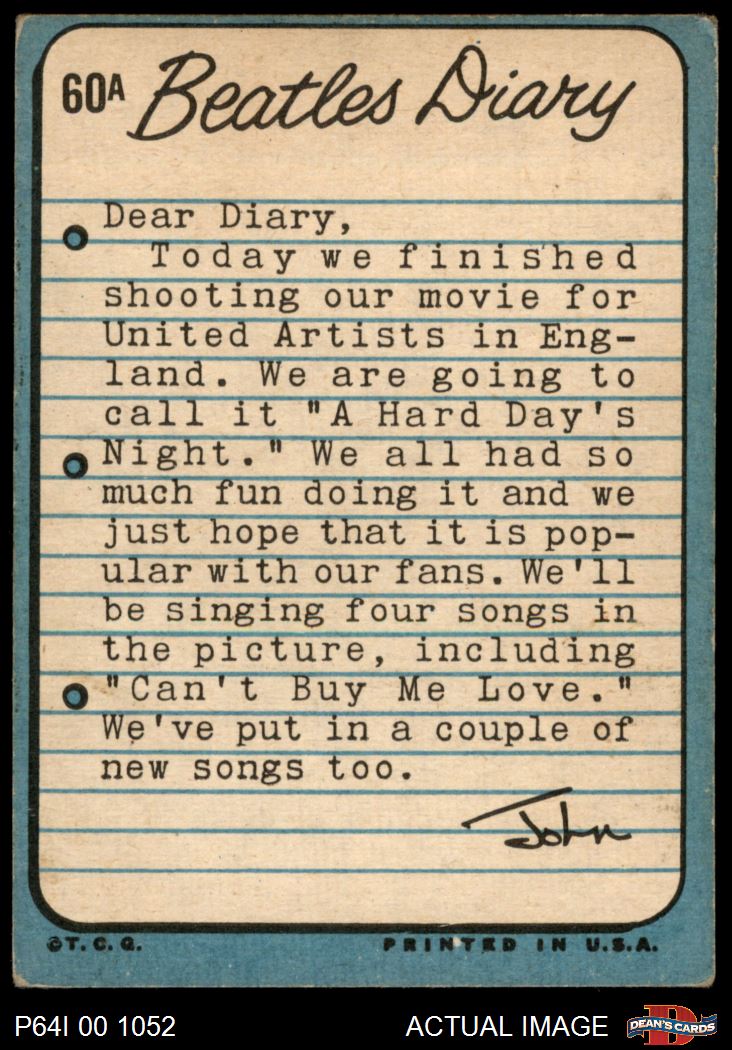 60A Beatles Diary
Dear Diary,
Today we finished
shooting our movie for
United Artists in Eng-
land. We are going to
call it "A Hard Day's
Night." We all had so
much fun doing it and we
just hope that it is pop-
ular with our fans. We'll
be singing four songs in
the picture, including
"Can't Buy Me Love."
We've put in a couple of
new songs too.
John
©T.C.G. PRINTED IN U.S.A.
P64I 00 1052 ACTUAL IMAGE D DEAN'S CARDS